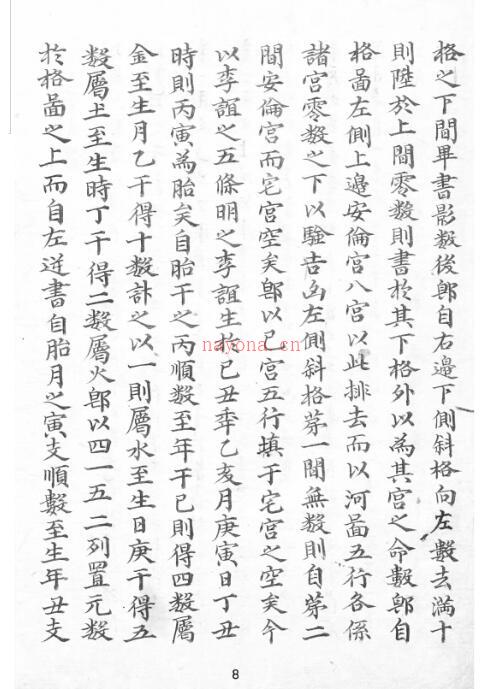 格之下間畢書影数後即自右邉下側斜格向左數去滿十
則陞於上間零数則書於其下格外以為其宮之命數即自
格啚左側上邉安倫宮八宮以此排去而以河啚五行各係
諸宮零数之下以驗吉凶左側斜格苐一間無数則自苐二
間安倫宮而宅宮空矣即以巳宮五行填于宅宮之空矣今
以李誼之五條明之李誼生於己丑年乙亥月庚寅日丁丑
時則丙寅為胎矣自胎干之丙順数至年干己則得四数属
金至生月乙干得十数訃之以一則屬水至生日庚干得五
数屬土至生時丁干得二数屬火即以四一五二列置元数
於格啚之上而自左逆書自胎月之寅支順數至生年丑支
nayona.cn
8